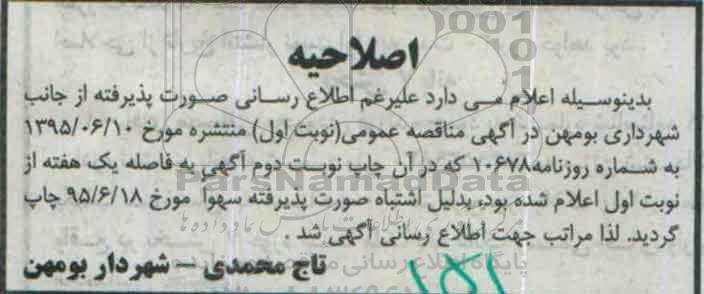 اصلاحیه
بدینوسیله اعلام می دارد علیرغم اطلاع رسانی صورت پذیرفته از جانب
شهرداری بومهن در آگهی مناقصه عمومی(نوبت اول) منتشره مورخ ۱۳۹۵/۰۶/۱۰
به شماره روزنامه۱۰۶۷۸ که در آن چاپ نوبت دوم آگهی به فاصله یک هفته از
نوبت اول اعلام شده بود، بدلیل اشتباه صورت پذیرفته سهوا مورخ ۹۵/۶/۱۸ چاپ
گردید. لذا مراتب جهت اطلاع رسانی آگهی شد .
تاج محمدی – شهردار بومهن
ParsNamadData
۱۵۱